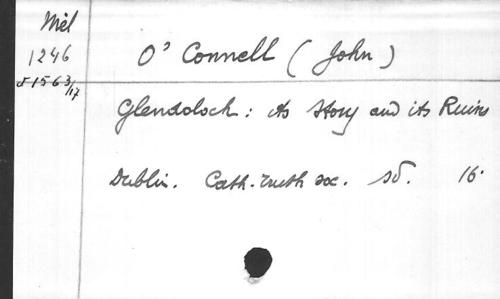 Mél
1246
§1563/17
O' Connell (John)
Glendoloch : its Story and its Ruins
Dublin. Cath. truth soc. sd. 16.